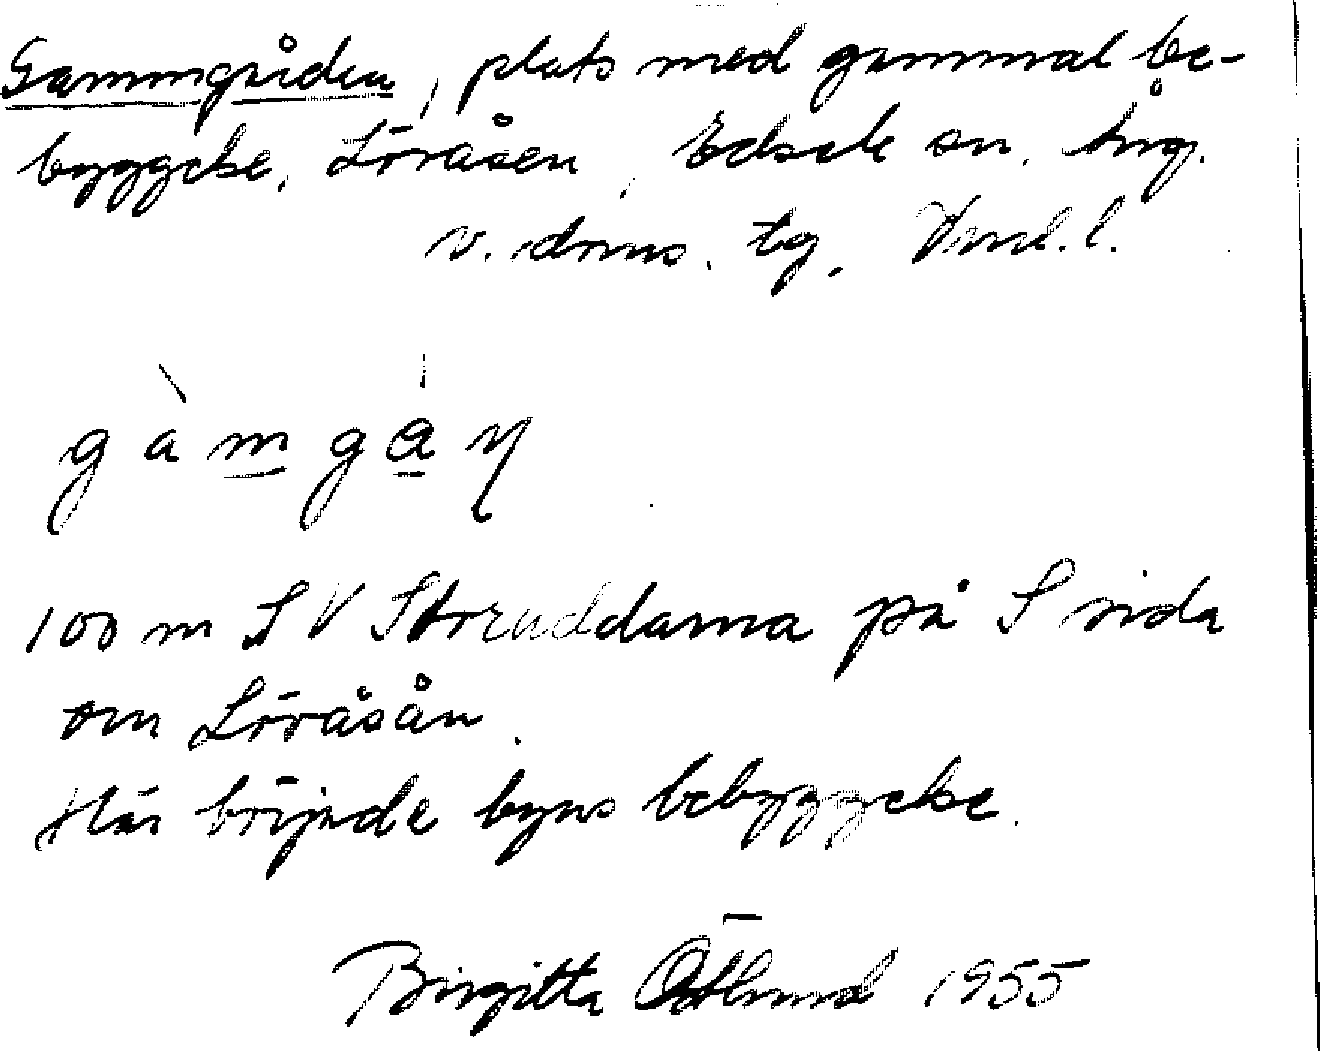 Gammgården, plats med gammal be-
byggelse, Löråsen, Edsele sn. Ång.
v. doms. tg. Vnrl. l.
gàmgáṇ
100 m SV Storuddarna på S sida
om Löråsån.
Här började byns bebyggelse.
Birgitta Östlund 1955